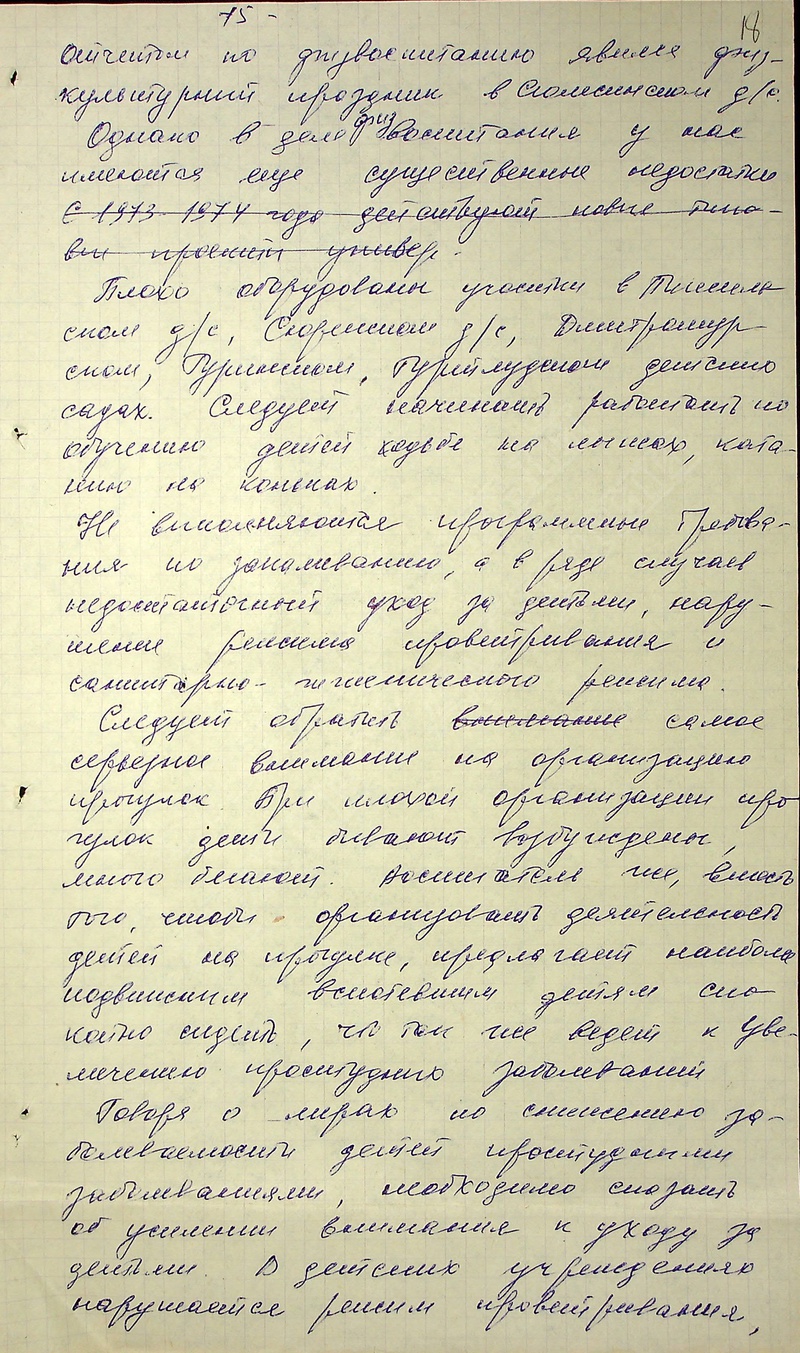 15 -
18
Отчетом по физвоспитанию явился физ-
культурный праздник в Сюмсинском д/с.
Однако в деле физвоспитания у нас
имеются еще существенные недостатки
С 1973-1974 года действуют новые типо-
вые проекты универ.
Плохо оборудованы участки в
ском д/с, Сюремском д/с, Дмитрошур-
ском, Гуринском, Гурезьпудгинском детских
садах. Следует начинать работать по
обучению детей ходьбе на лыжах, ката-
нию на коньках.
Не выполняются программные требова-
ния по закаливанию, а в ряде случаев
недостаточный уход за детьми, нару-
шение режима проветривания и
санитарно-гигиенического режима.
Следует обратить внимание самое
серьезное внимание на организацию
прогулок. При плохой организации про
гулок дети бывают возбуждены,
много бегают. Воспитатель же, вместо
того, чтобы организовать деятельность
детей на прогулке, предлагает наиболее
подвижным вспотевшим детям спо
койно сидеть, что так же ведет к уве-
личению простудных заболеваний
Говоря о мерах по снижению за-
болеваемости детей простудными
заболеваниями, необходимо сказать
об усилении внимания к уходу за
детьми. В детских учреждениях
нарушается режим проветривания,